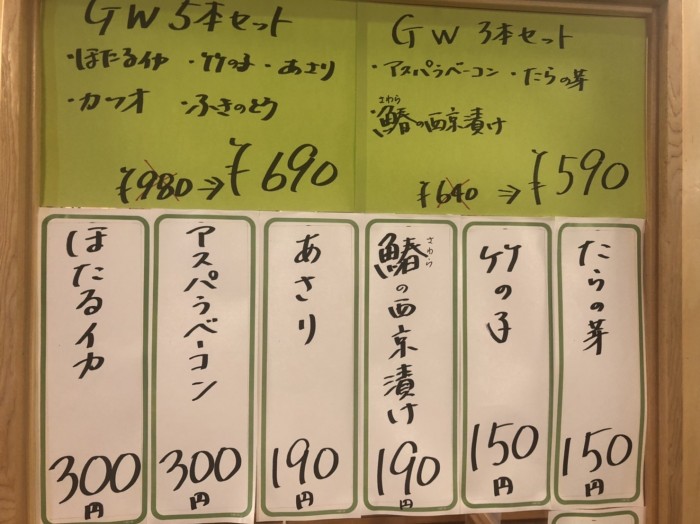 GW 5本セット
・ほたるイカ ・竹の子 ・あさり
・カツオ ・ふきのとう
¥980→¥690
GW 3本セット
・アスパラベーコン ・たらの芽
さわら
鰆の西京漬け
¥640→¥590
ほたるイカ
300円
アスパラベーコン
300円
あさり
190円
さわら
鰆の西京漬け
190円
竹の子
150円
たらの芽
150円